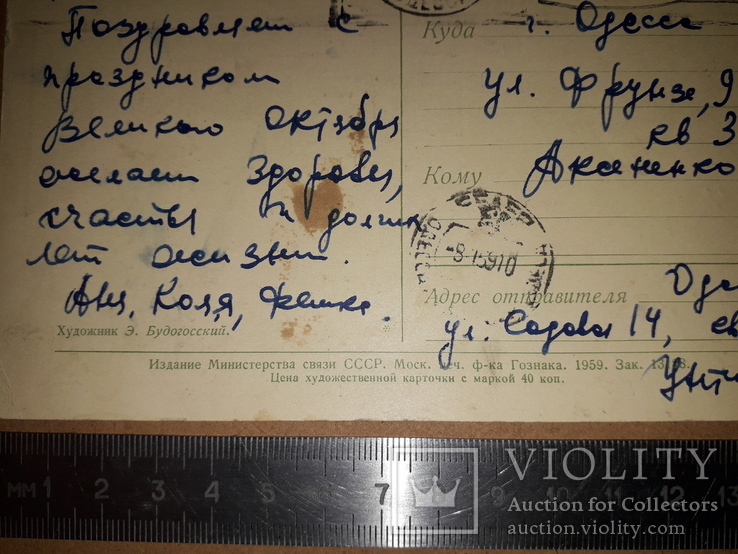 Поздравляем с
праздником
Великого Октября
желаем здоровья,
счастья и долгих
лет жизни.
Аня, Коля,
Художник Э. Будогосский.
Куда г. Одесса
ул. Фрунзе, 9
кв 3
Кому Аксененко
Адрес отправителя Оде
ул. Садовая 14, кв
Издание Министерства связи СССР. Моск. печ. ф-ка Гознака. 1959. Зак.
Цена художественной карточки с маркой 40 коп.
мм 1 2 3 4 5 6 7 9 10 11 12 13
VIOLITY
Auction for Collectors
auction.violity.com